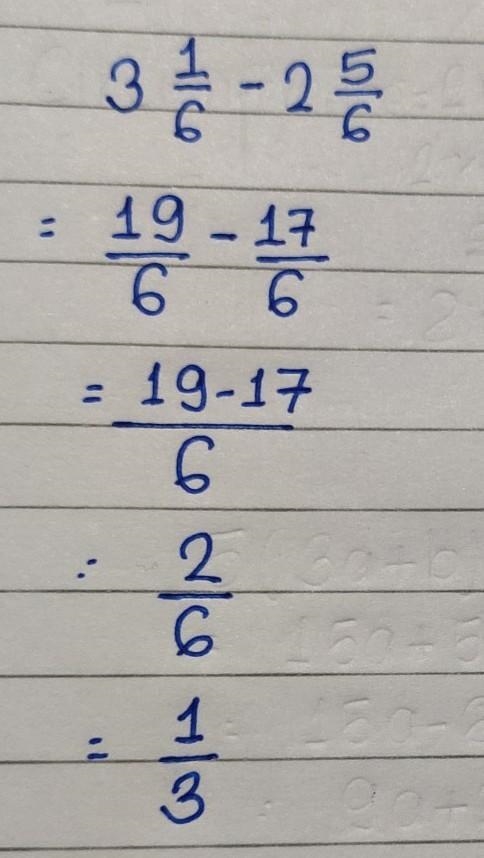 3 1/6 - 2 5/6
= 19/6 - 17/6
= 19-17/6
: 2/6
= 1/3